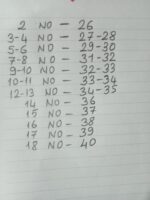 2 NO - 26
3-4 NO - 27-28
5-6 NO - 29-30
7-8 NO - 31-32
9-10 NO - 32-33
10-11 NO - 33-34
12-13 NO - 34-35
14 NO - 36
15 NO - 37
16 NO - 38
17 NO - 39
18 NO - 40